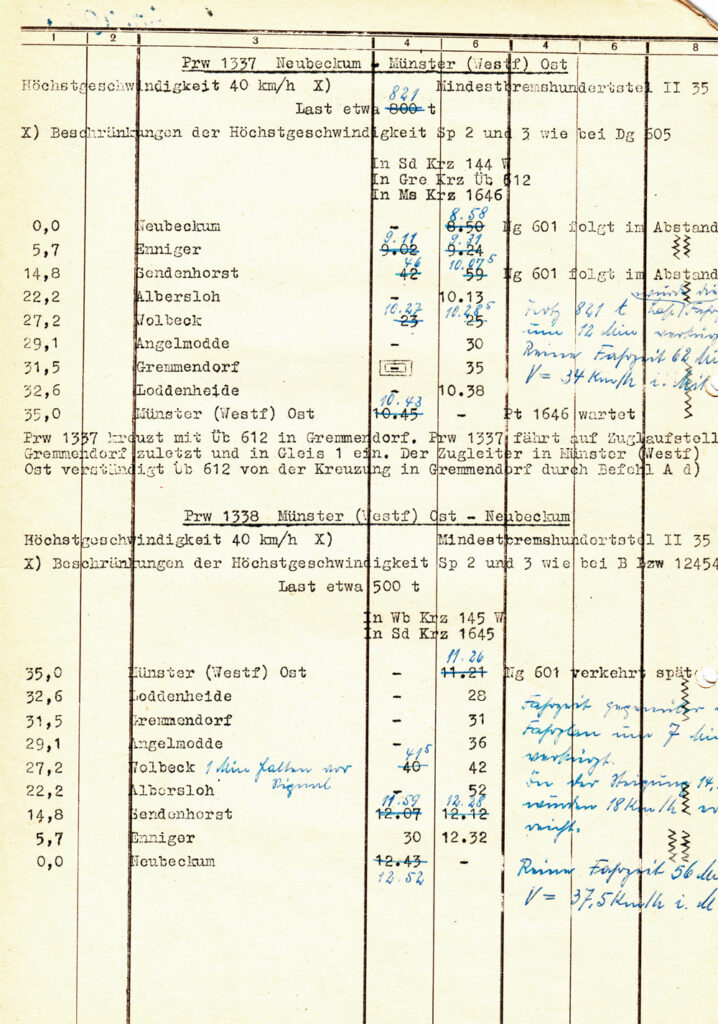 1 2 3 4 6 4 6 8
Prw 1337 Neubeckum - Münster (Westf) Ost
Höchstgeschwindigkeit 40 km/h X) Mindestbremshundertstel II 35
821
Last etwa 800 t
X) Beschränkungen der Höchstgeschwindigkeit Sp 2 und 3 wie bei Dg 605
In Sd Krz 144 W
In Gre Krz Üb 612
In Ms Krz 1646
8.58
0,0 Neubeckum - 8.50 Ng 601 folgt im Abstand
9.11
5,7 Enniger 9.02 9.24
46 10.07⁵
14,8 Sendenhorst 42 59 Ng 601 folgt im Abstand
22,2 Albersloh - 10.13
10.27 10.28⁵ Trotz 821 t
27,2 Wolbeck 23 25
um 12 Min
29,1 Angelmodde - 30
Reine Fahrzeit 62
31,5 Gremmendorf - 35
V = 34 Km/h i.
32,6 Loddenheide - 10.38
10.43
35,0 Münster (Westf) Ost 10.45 - Pt 1646 wartet
Prw 1337 kreuzt mit Üb 612 in Gremmendorf. Prw 1337 fährt auf Zuglaufstell
Gremmendorf zuletzt und in Gleis 1 ein. Der Zugleiter in Münster (Westf)
Ost verständigt Üb 612 von der Kreuzung in Gremmendorf durch Befehl A d)
Prw 1338 Münster (Westf) Ost - Neubeckum
Höchstgeschwindigkeit 40 km/h X) Mindestbremshundertstel II 35
X) Beschränkungen der Höchstgeschwindigkeit Sp 2 und 3 wie bei B Lzw 12454
Last etwa 500 t
In Wb Krz 145 W
In Sd Krz 1645
11.26
35,0 Münster (Westf) Ost - 11.21 Ng 601 verkehrt spät
32,6 Loddenheide - 28
Fahrzeit gegenüber
31,5 Gremmendorf - 31
Fahrplan um 7
29,1 Angelmodde - 36
verkürzt.
41⁵
27,2 Wolbeck 1 Min halten vor Signal 40 42
In der Steigung 14,
22,2 Albersloh - 52
wurden 18 Km/h er
11.59 12.28
14,8 Sendenhorst 12.07 12.12
reicht.
5,7 Enniger 30 12.32
0,0 Neubeckum 12.43 -
12.52
Reine Fahrzeit 56
V = 37,5 Km/h i. M